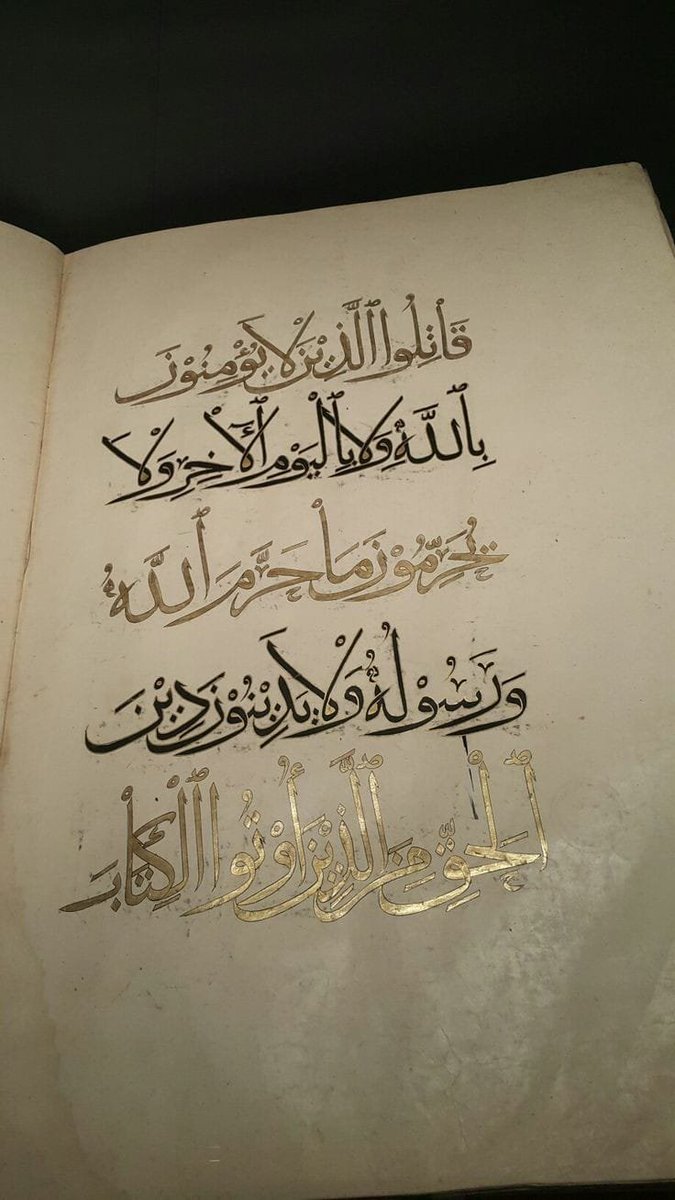 قَاتِلُوا ٱلَّذِيْنَ لَا يُؤْمِنُوْنَ
بِٱللَّهِ وَلَا بِٱلْيَوْمِ ٱلْأَخِرِ وَلَا
يُحَرِّمُوْنَ مَا حَرَّمَ ٱللَّهُ
وَرَسُوْلُهُ وَلَا يَدِيْنُوْنَ دِيْنَ
ٱلْحَقِّ مِنَ ٱلَّذِيْنَ أُوْتُوا ٱلْكِتَابَ